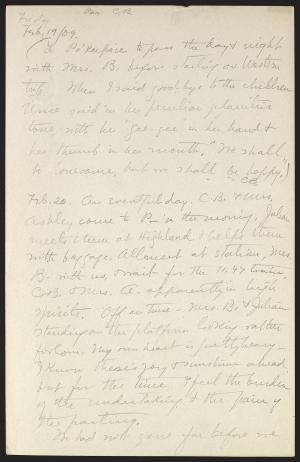 Friday
Feb. 19/09.
To Po'keepsie to pass the day & night
with Mrs. B. before starting on Western
trip. When I said good bye to the children
said in her peculiar plaintive
tone, with her "gee-gee in her hand &
her thumb in her mouth. "We shall
be lonesome, but we shall be happy.)
Feb. 20. An eventful day. C.B. & Mrs.
Ashley come to in the morning. Julian
meets them at Highland & helps them
with baggage. All meet at station, Mrs.
B. with us, & wait for the 11.47 train.
C.B. & Mrs. A. apparently in high
spirits. Off on time - Mrs. B. & Julian
standing on the platform looking rather
forlorn. My own heart is pretty heavy -
I know there's joy & sunshine ahead,
but for the time I feel the burden
of the undertaking & the pain of
the parting.
We had not gone far before we